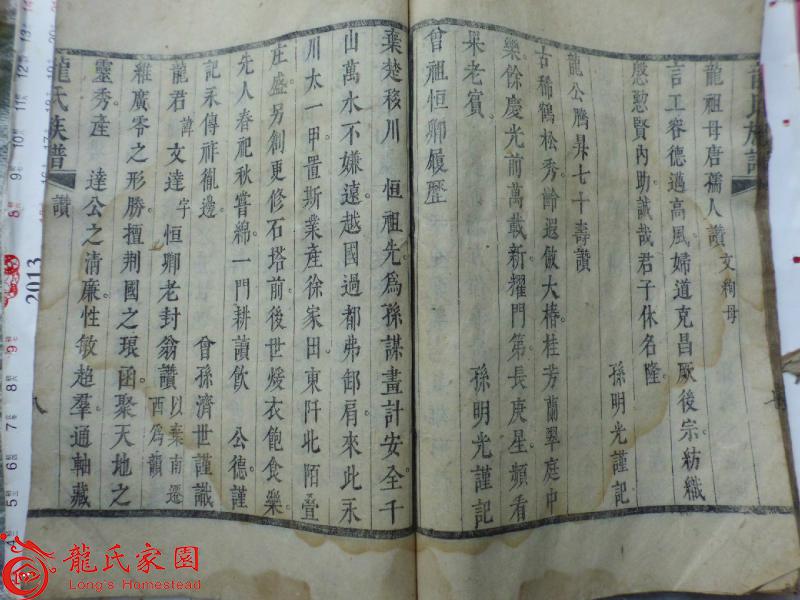 龍祖母唐孺人讚 文絢母
言工容德邁高風婦道克昌厥後宗紡織
慇懃賢內助誠哉君子休名隆
孫明光謹記
龍公騰昇七十壽讚
古稀鶴松秀齡遐倣大椿桂芳蘭翠庭中
樂餘慶光前萬載新耀門第長庚星頻看
果老賓 孫明光謹記
曾祖恒卿履歷
棄楚移川 恒祖先爲孫謀畫計安全千
山萬水不嫌遠越國過都弗卸肩來此永
川太一甲置斯業產徐家田東阡北陌疊
庄盛另創更修石塔前後世煖衣飽食樂
先人春祀秋嘗綿一門耕讀飲 公德謹
記禾傳祥徿邊 曾孫濟世謹識
龍君諱文達字恒卿老封翁讚以棄南遷
西爲韻
維廣零之形勝擅荊國之琅函聚天地之
靈秀產 達公之清廉性敏超羣通軸藏
龍氏族譜 讚 八
龍氏族譜
2013
龍氏家園
Long's Homestead